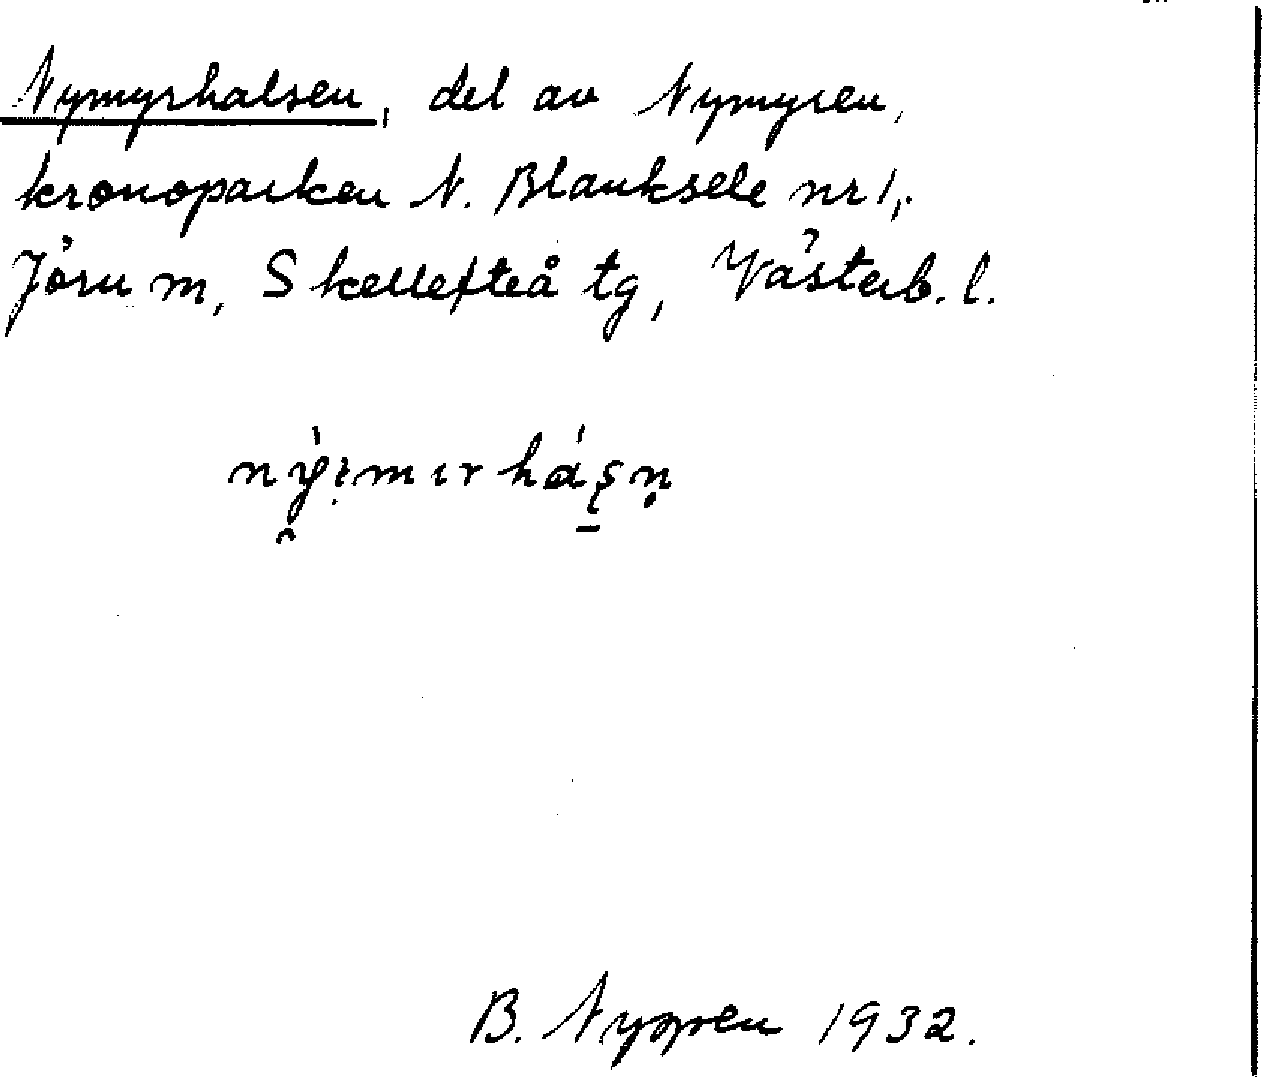 Nymyrhalsen, del av Nymyren,
kronoparken N. Blanksele nr 1,
Jörn m, Skellefteå tg, Västerb. l.
B. Nygren 1932.